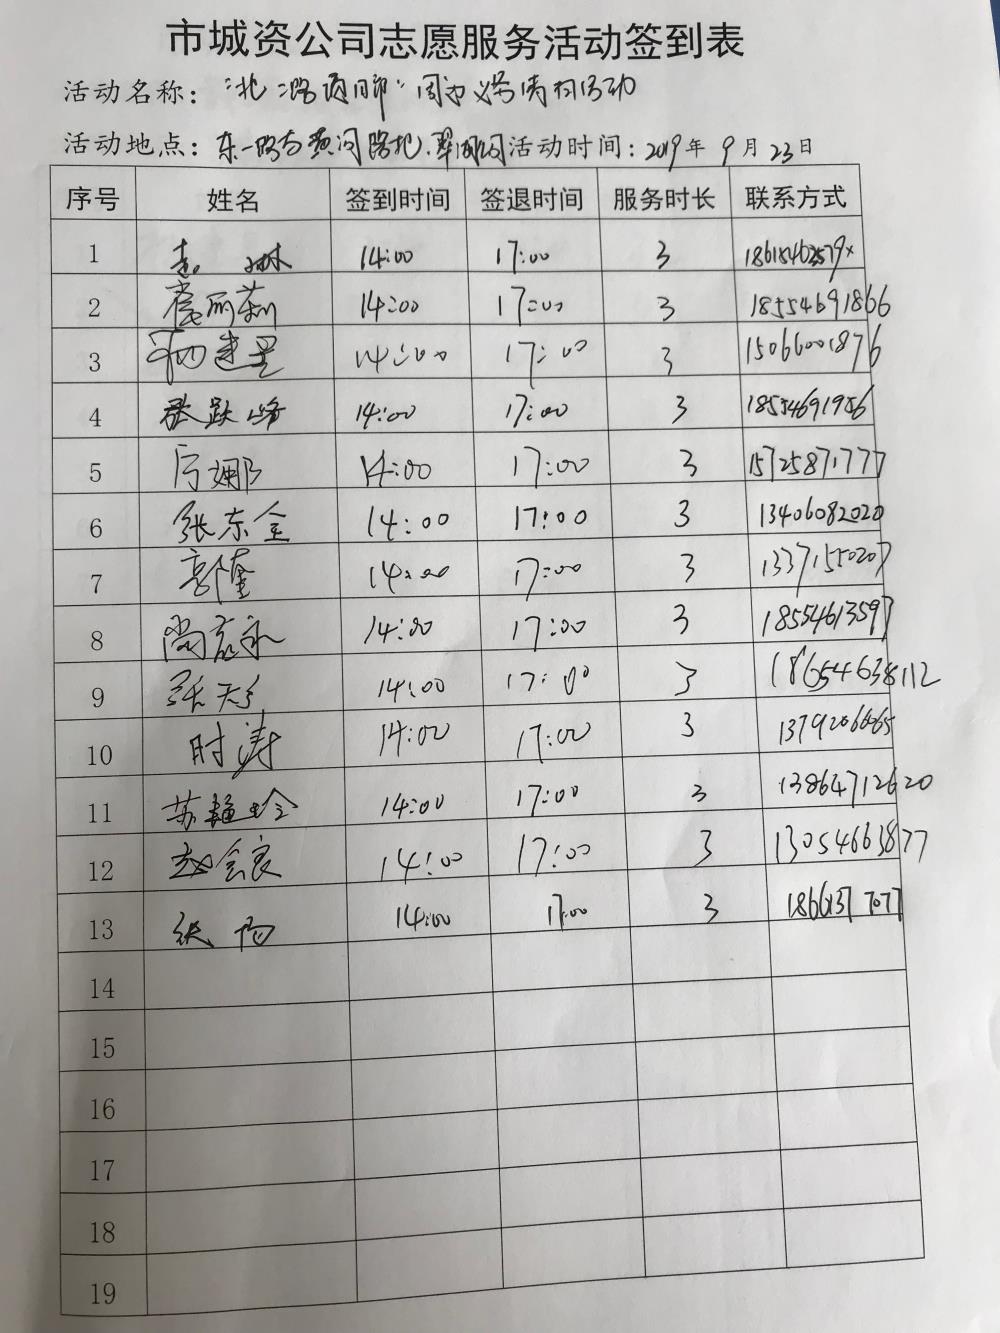 市城资公司志愿服务活动签到表
活动名称："北二路项目部"周边义务清扫活动
活动地点：东一路与黄河路北、 活动时间：2019年9月23日
序号 姓名 签到时间 签退时间 服务时长 联系方式
1 琳 14:00 17:00 3
2 丽莉 14:00 17:00 3 18554691866
3 建星 14:00 17:00 3 15066001876
4 张跃峰 14:00 17:00 3 18554691956
5 娜 14:00 17:00 3 15725871777
6 张东金 14:00 17:00 3 13406082020
7 郭隆 14:00 17:00 3 13371550207
8 尚永 14:00 17:00 3 18554613597
9 张天 14:00 17:00 3 18654638112
10 时涛 14:00 17:00 3 13792066065
11 苏玲 14:00 17:00 3 13864712620
12 赵会良 14:00 17:00 3 13054663877
13 14:00 17:00 3 18661377077
14
15
16
17
18
19